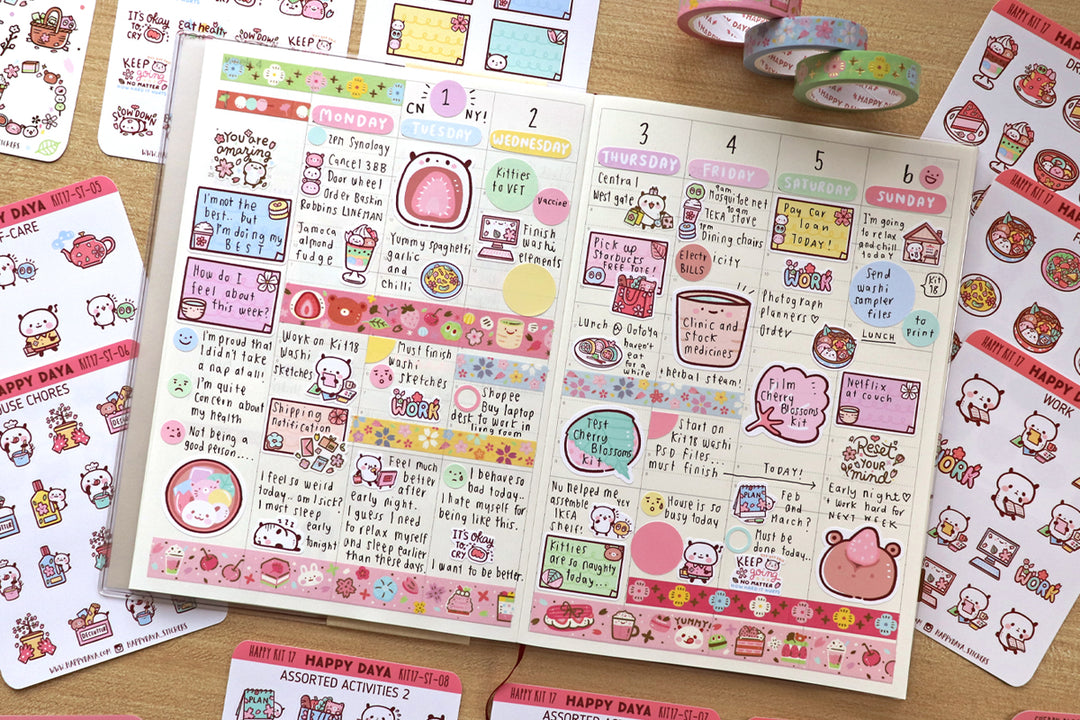 IT'S OKAY
TO CRY
Eat healthy
SLOW DOWN
KEEP
going
NO MATTER
HOW HARD IT HURTS
KEEP
SLOW DOWN
HAPPY DAYA
HAPPY DAYA
HAPPY KIT 17
HAPPY DAYA KIT17-ST-05
HAPPY DAYA KIT17-ST-06
HOUSE CHORES
DECLUTTER
WWW.HAPPYDAYA.COM
HAPPYDAYA_STICKERS
You are
amazing
I'm not the
best.. but
I'm doing my
BEST
How do I
feel about
this week?
I'm proud that
I didn't take
a nap at all!
I'm quite
concern about
my health
Not being a
good person....
MONDAY
Zen Synology
Cancel 3BB
Door wheel
Order Baskin
Robbins LINEMAN
Jamoca
almond
fudge
Work on Kit18
washi
sketches
Shipping
notification
I feel so weird
today.. am I sick?
I must sleep
early
tonight
1
CNY!
TUESDAY
Yummy spaghetti
garlic
and
chilli
Must finish
washi
sketches
WORK
Feel much
better
after
early night.
I guess I need
to relax myself
and sleep earlier
than these days
2
WEDNESDAY
Kitties
to VET
Vaccine
Finish
washi
elements
Shopee
Buy laptop
desk to work in
living room
I behave so
bad today..
I hate myself for
being like this.
IT'S OKAY
TO CRY
I want to be better.
3
THURSDAY
Central
West gate
Pick up
Starbucks
FREE Tote!
Lunch @ Ootoya
haven't
eat
for a
while
Test
Cherry
Blossoms
Kit
Nu helped me
assemble
IKEA
shelf!
Kitties
are so naughty
today...
4
FRIDAY
9am
Mosquito net
10am
TEKA stove
1pm
Dining chairs
Electricity
BILLS
Clinic and
stock
medicines
+herbal steam!
Start on
Kit18 washi
Psd files...
must finish
House is so
busy today
5
SATURDAY
Pay car
loan
TODAY!
WORK
Photograph
planners ♡
Order
Film
Cherry
Blossoms
kit
TODAY!
PLAN
Feb
and
March?
Must be
done today..
KEEP
going
NO MATTER
HOW HARD IT HURTS
6
SUNDAY
I'm going
to relax
and chill
today
Send
washi
sampler
files
Kit
18
to
Print
LUNCH
Netflix
at couch
Reset
YOUR
mind
Early night ♡
+ work hard for
NEXT WEEK
YUMMY!
HAPPY KIT 17
WORK
WORK
WORK
HAPPY KIT 17 HAPPY DAYA KIT17-ST-08
ASSORTED ACTIVITIES 2
PLAN
HAPPY KIT 17 HAPPY DAYA KIT17-ST-07